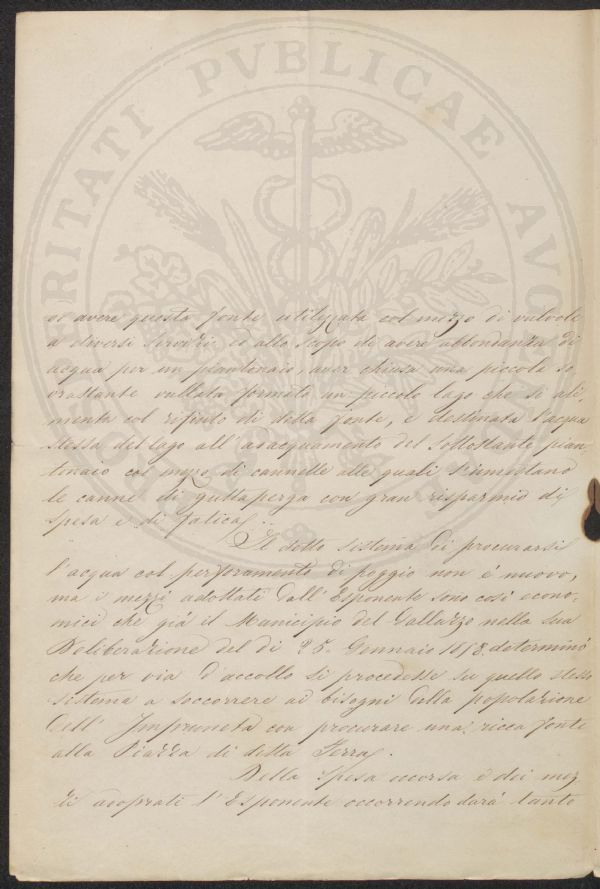 PROSPERITATI PVBLICAE AVGENDAE
avere questa fonte utilizzata col mezzo di valvole
a diversi servizi ed allo scopo di avere abbondanza di
acqua per un piantonaio, aver chiusa una piccola so„
vrastante vallata formato un piccolo lago che si ali„
menta col rifiuto di detta fonte, e destinata l'acqua
stessa del lago all'anacquamento del sottostante pian„
tonaio col mezzo di cannelle alle quali s'innestano
le canne di guttaperga con gran risparmio di
spesa e di fatica.
Il detto sistema di procurarsi
l'acqua col perforamento di poggio non é nuovo,
ma i mezzi adottati dall'Esponente sono così econo„
mici che già il Municipio del Galluzzo nella sua
Deliberazione del dì 25. Gennaio 1878. determinò
che per via d'accollo si procedesse su quello stesso
sistema a soccorrere ai bisogni della popolazione
dell'Impruneta con procurare una ricca fonte
alla Piazza di detta Terra.
Della spesa occorsa e dei mez
zi adoprati l'Esponente occorrendo darà tanto